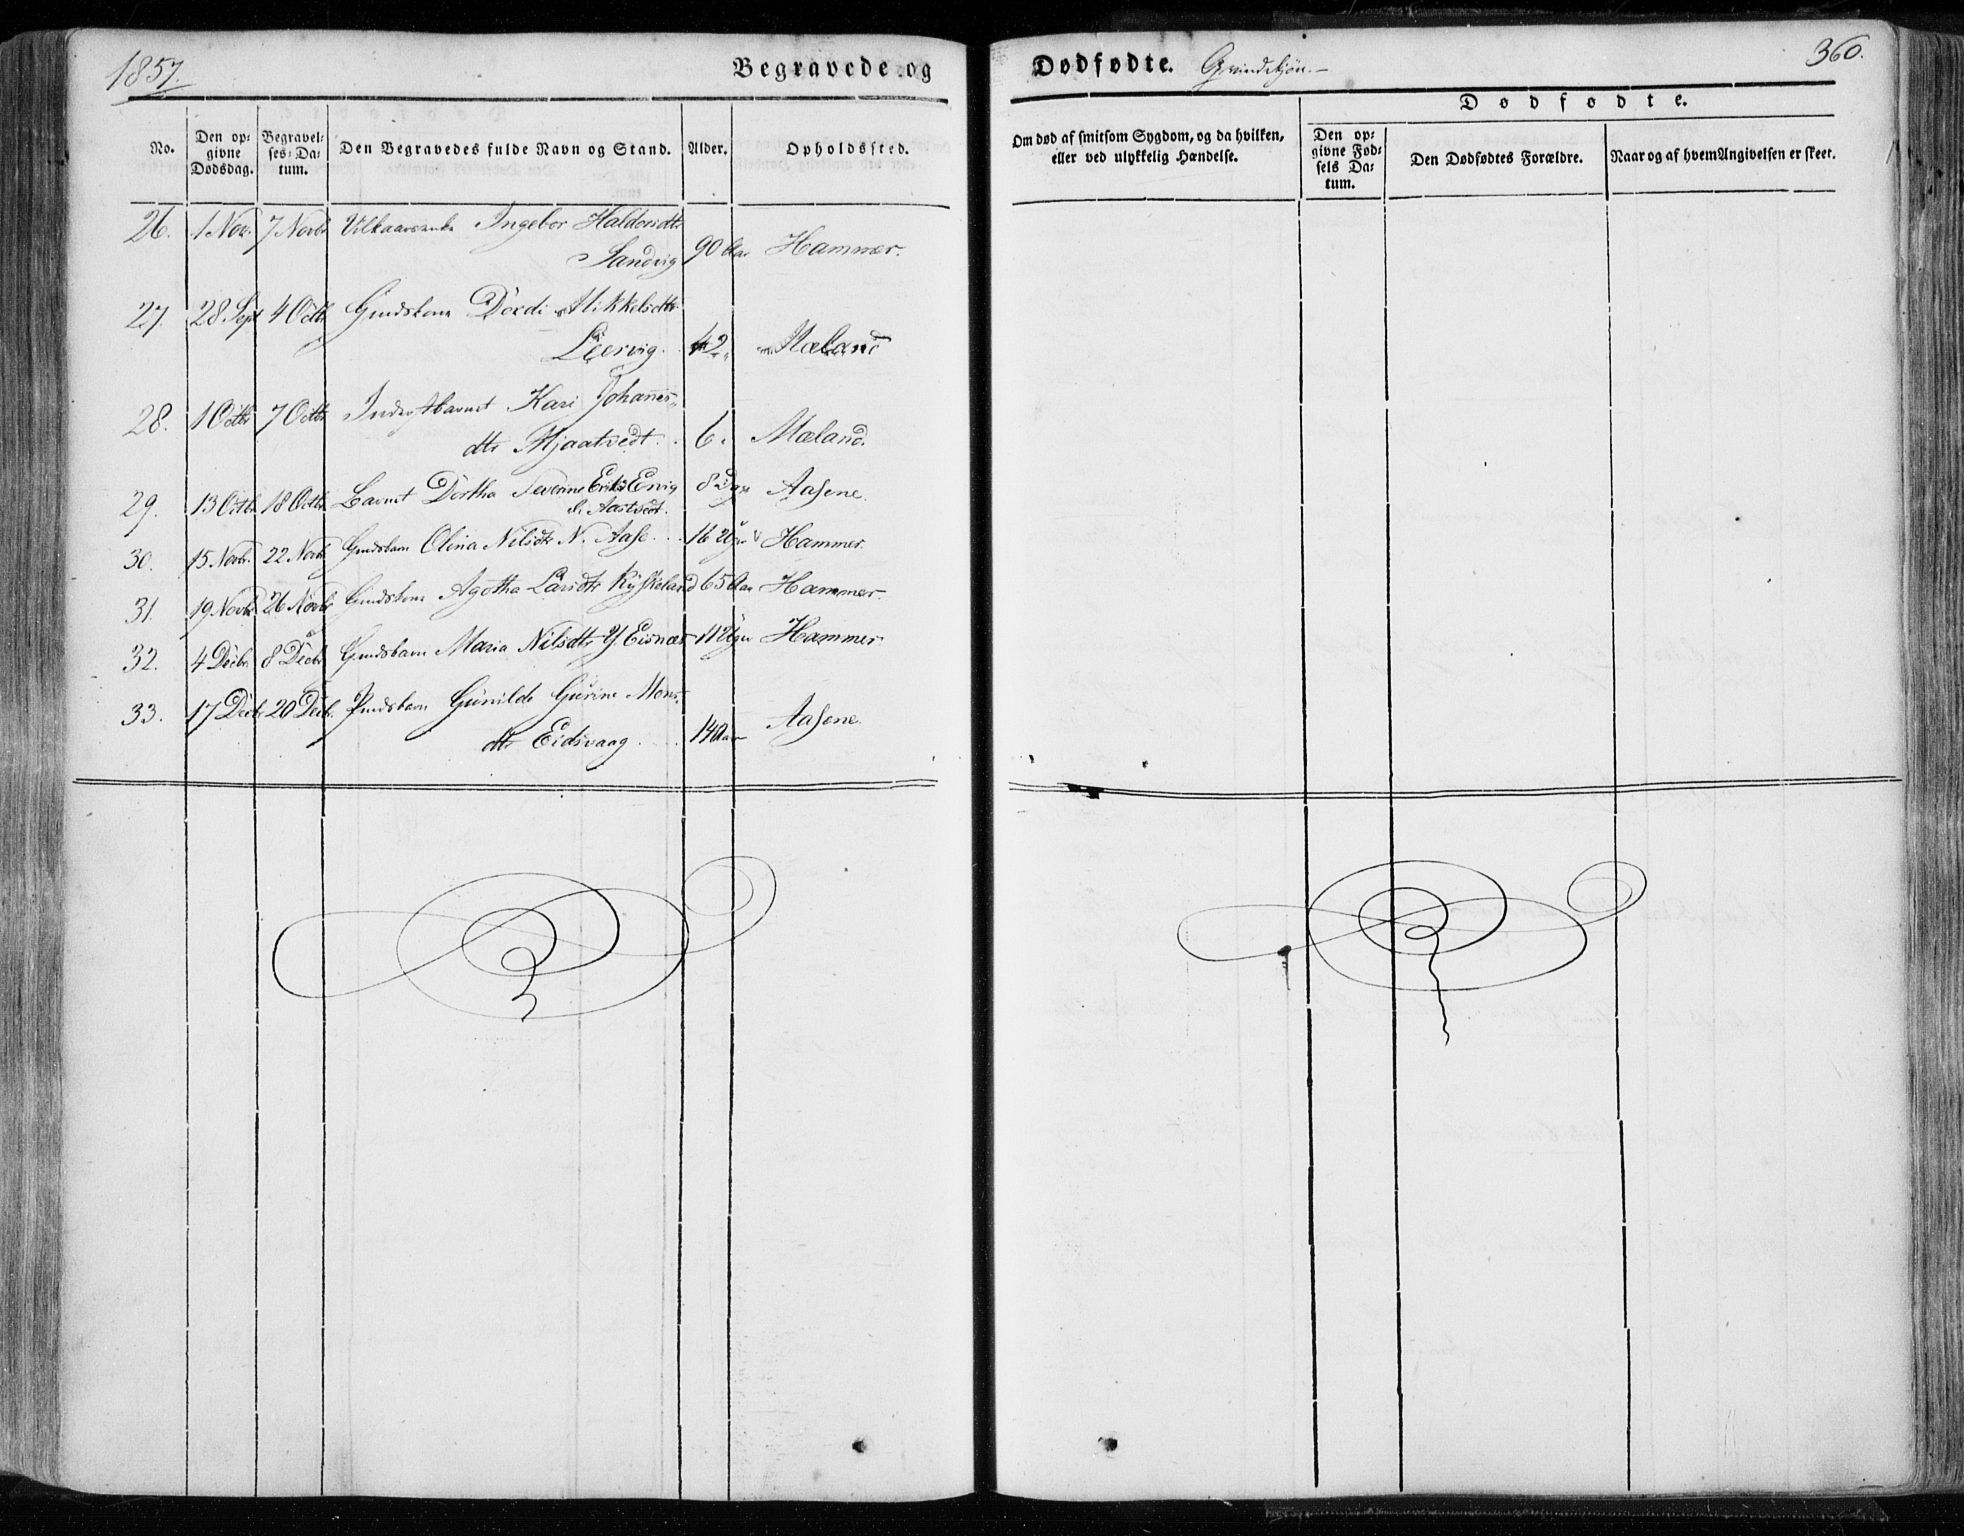 1857
Begravede og
No.
Den op-
givne
Dødsdag.
Begravel-
ses-Da-
tum.
Den Begravedes fulde Navn og Stand.
Alder.
Opholdssted.
26. 1 Nov. 7 Novbr Vilkaarsenke Ingebor Haldorsdtr
Sandvig 90 Aar Hammer.
27. 28 Sept 4 Octbr Gmdskone Dordi Mikkelsdtr
Leervig. 42 " Mæland
28. 1 Octbr 7 Octbr Inderstbarnet Kari Johannes-
dtr Mjaatvedt. 6 " Mæland.
29. 13 Octb. 18 Octbr Barnet Dortha Severine Eriks Envig
Aastvedt. 8 Dge Aasene.
30. 15 Novbr. 22 Novbr Gmdsbarn Olina Nilsdtr N. Aase 16 Uger Hammer.
31. 19 Novbr 26 Novbr Gmdskone Agotha Larsdtr Rysseland 65 Aar Hammer.
32. 4 Decbr 8 Decbr Gmdsbarn Maria Nilsdtr Y. Eisnæs 11 Uger Hammer
33. 17 Decbr 20 Decb. Pmdsbarn Gunilde Gurine Mons-
dtr Eidsvaag 14 Aar Aasene.
Dødfødte.
360.
Om død af smitsom Sygdom, og da hvilken,
eller ved ulykkelig Hændelse.
Dødfødte.
Den op-
givne Fød-
sels Da-
tum.
Den Dødfødtes Forældre.
Naar og af hvem Angivelsen er skeet.